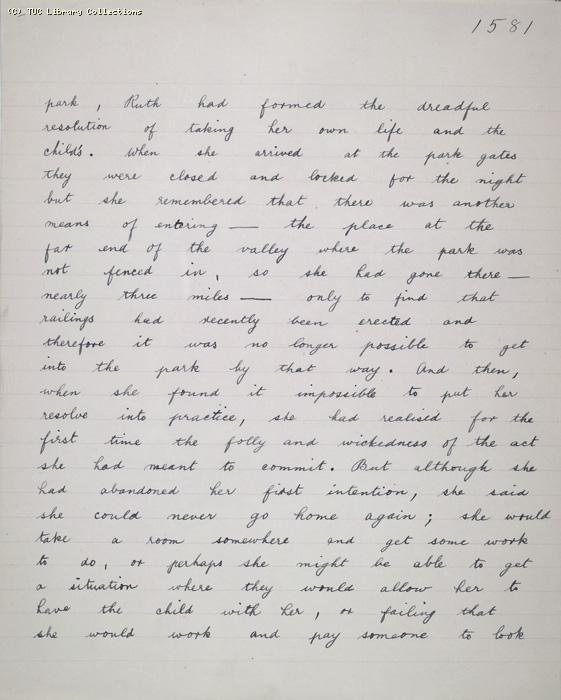 (C) TUC Library Collections
1581
park, Ruth had formed the dreadful
resolution of taking her own life and the
child's. When she arrived at the park gates
they were closed and locked for the night
but she remembered that there was another
means of entering — the place at the
far end of the valley where the park was
not fenced in, so she had gone there —
nearly three miles — only to find that
railings had recently been erected and
therefore it was no longer possible to get
into the park by that way. And then,
when she found it impossible to put her
resolve into practice, she had realised for the
first time the folly and wickedness of the act
she had meant to commit. But although she
had abandoned her first intention, she said
she could never go home again; she would
take a room somewhere and get some work
to do, or perhaps she might be able to get
a situation where they would allow her to
have the child with her, or failing that
she would work and pay someone to look